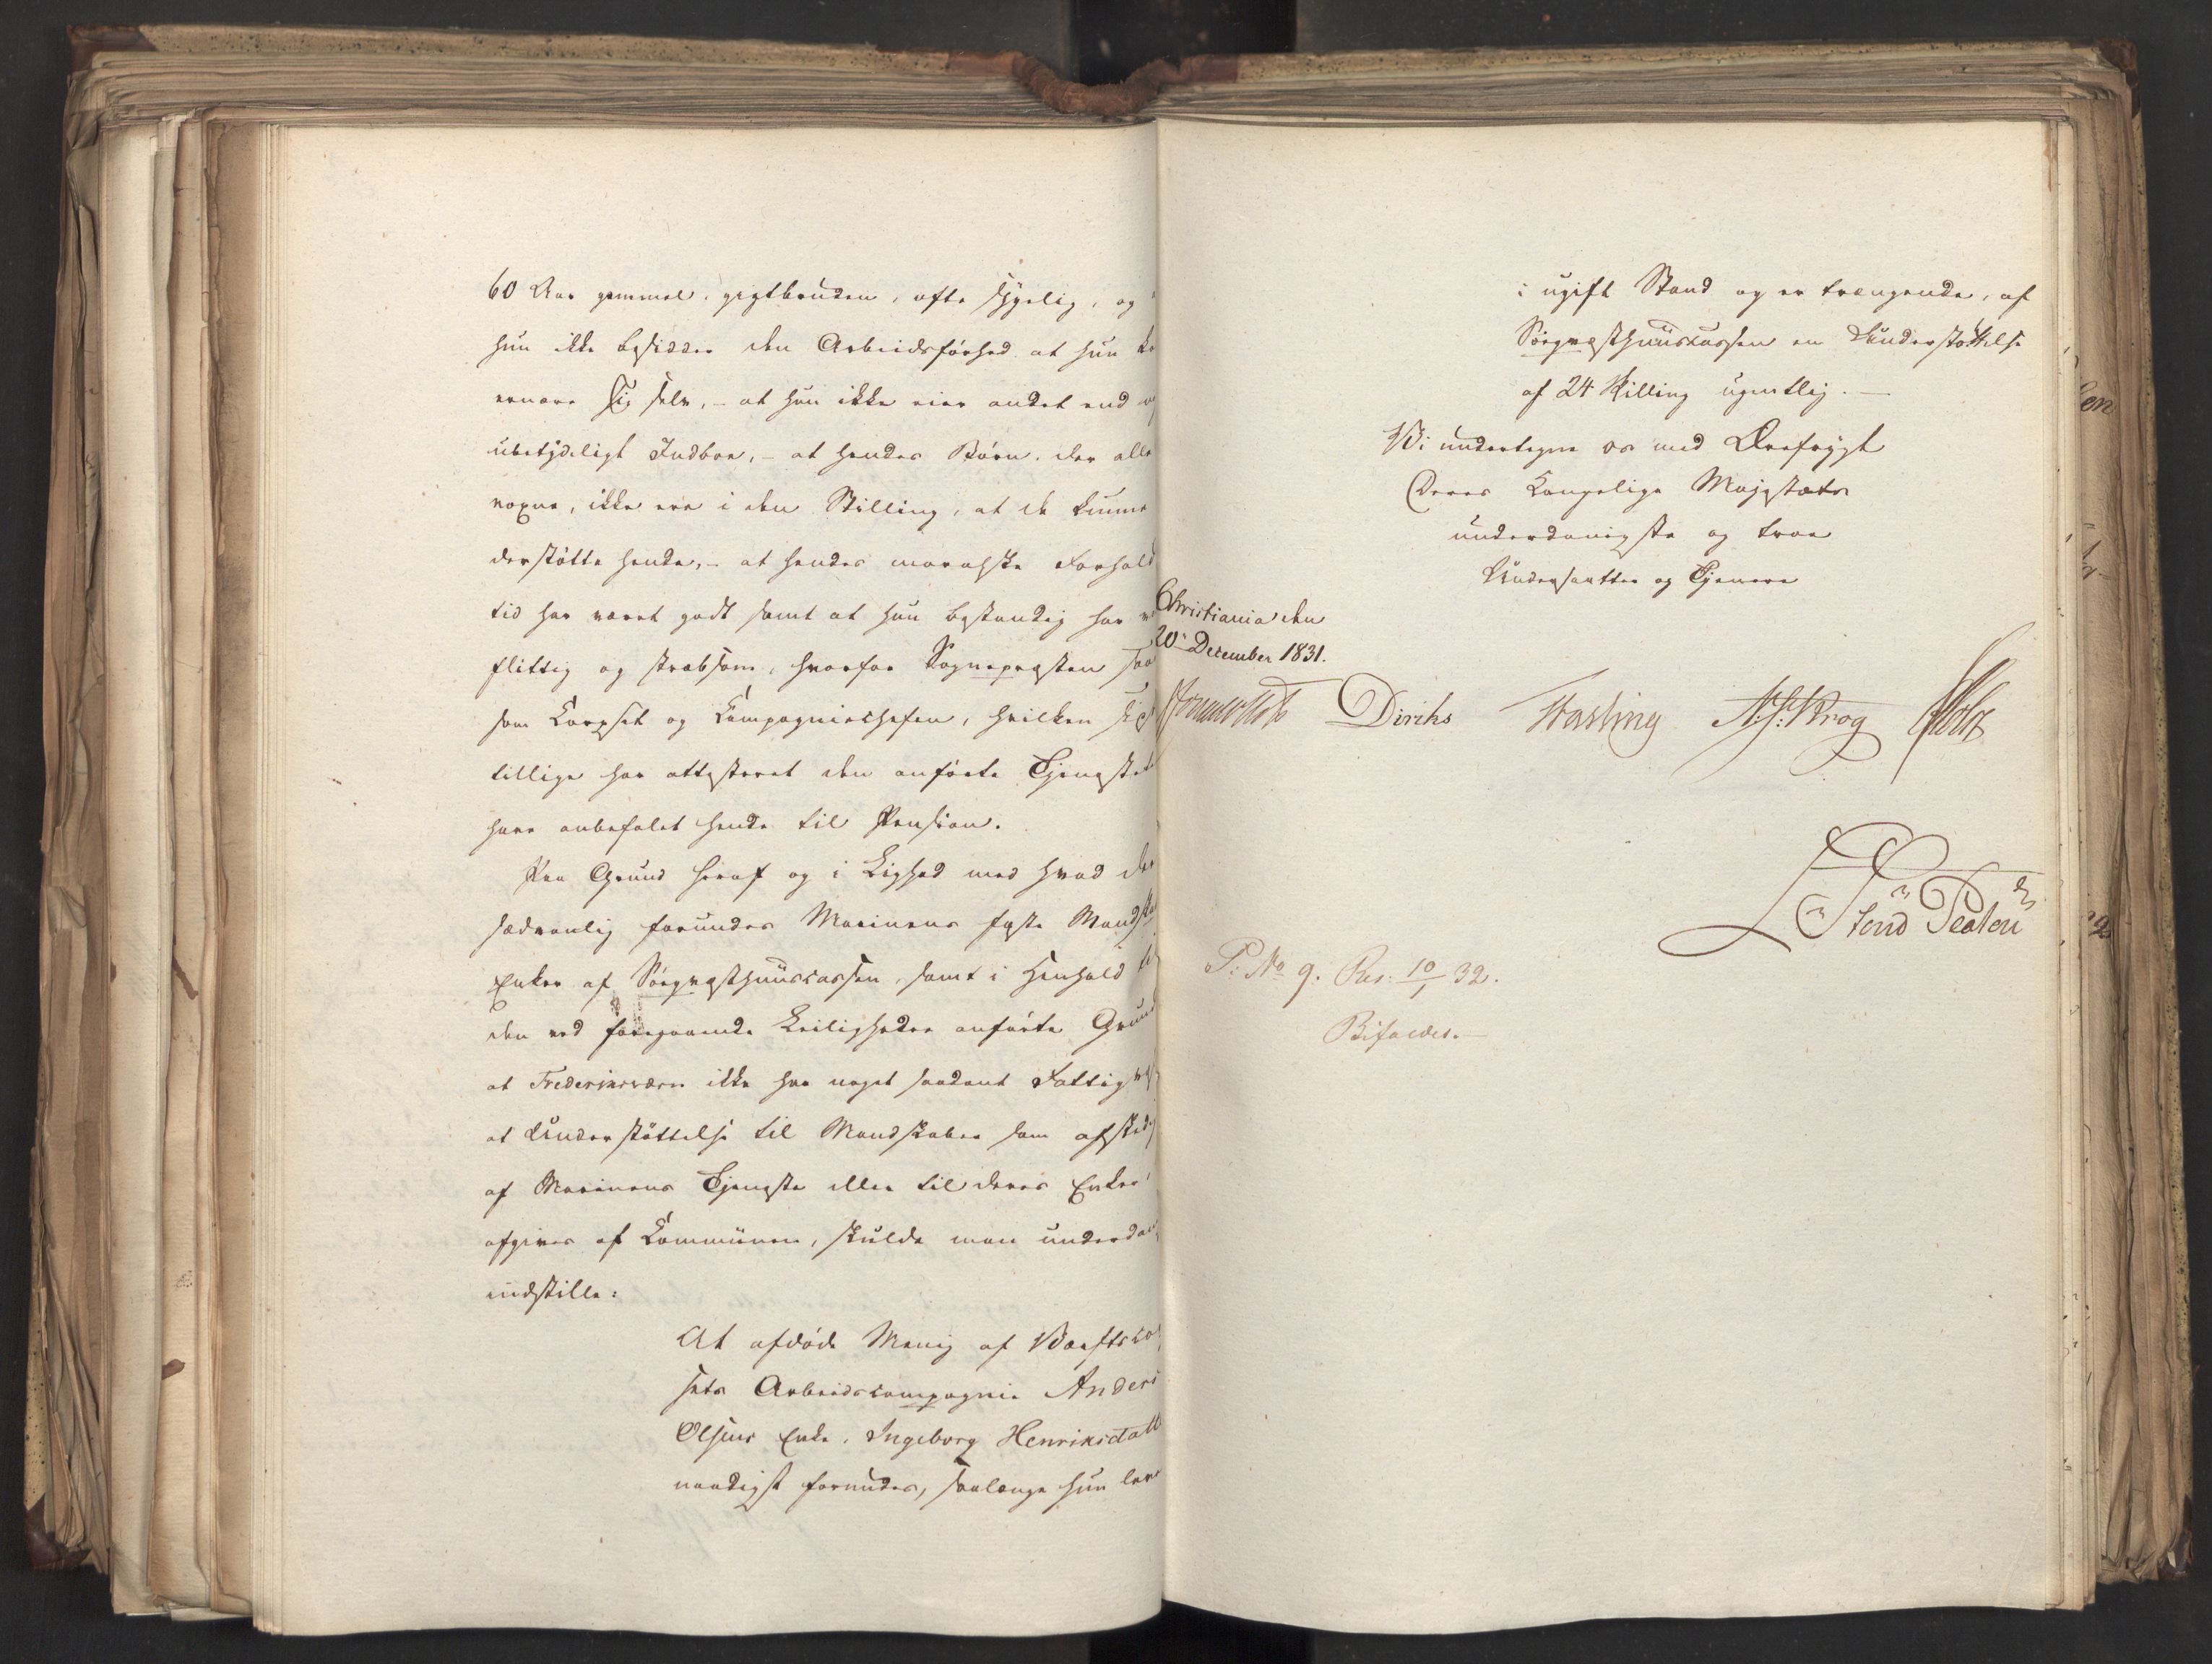 60 Aar gammel, gigtbruden, ofte sygelig, og
hun ikke besidder den Arbeidsførhed at hun
ernære sig selv, – at hun ikke eier andet end
ubetydeligt Indboe, – at hendes Børn, der alle
voxne, ikke ere i den Stilling, at de kunne
derstøtte hende, – at hendes moralske Forhold
tid har været godt samt at hun bestandig har
flittig og stræbsom, hvorfor Sognepræsten saa
som Corpset og Compagniechefen, hvilken
tillige har attesteret den anførte Tjeneste
have anbefalet hende til Pension.
Paa Grund heraf og i Lighed med hvad der
sædvanlig forundes Marinens faste Mandska
Enker af Søeqvæsthuuscassen, samt i Henhold til
den ved foregaaende Leiligheder anførte Grund
at Frederiksværn ikke har noget saadant Fattigv
at Understøttelse til Mandskaber som afskedi
af Marinens Tjeneste eller til deres Enker
afgives af Communen, skulde man underda
indstille:
At afdøde Menig af Værftscor
sets Arbeidscompagnie Anders
Olsens Enke, Ingeborg Henriksdatt
naadigst forundes, saalænge hun leve
i ugift Stand og er trængende, af
Søeqvæsthuuscassen en Understøttelse
af 24 Skilling ugentlig. —
Vi undertegne os med Ærefrygt
Deres Kongelige Majestæts
underdanigste og troe
Undersaatter og Tjenere
Christiania den
20 December 1831.
Diriks Fasting Krog Holst
P: No 9. Res: 10/1 32.
Bifaldes. —